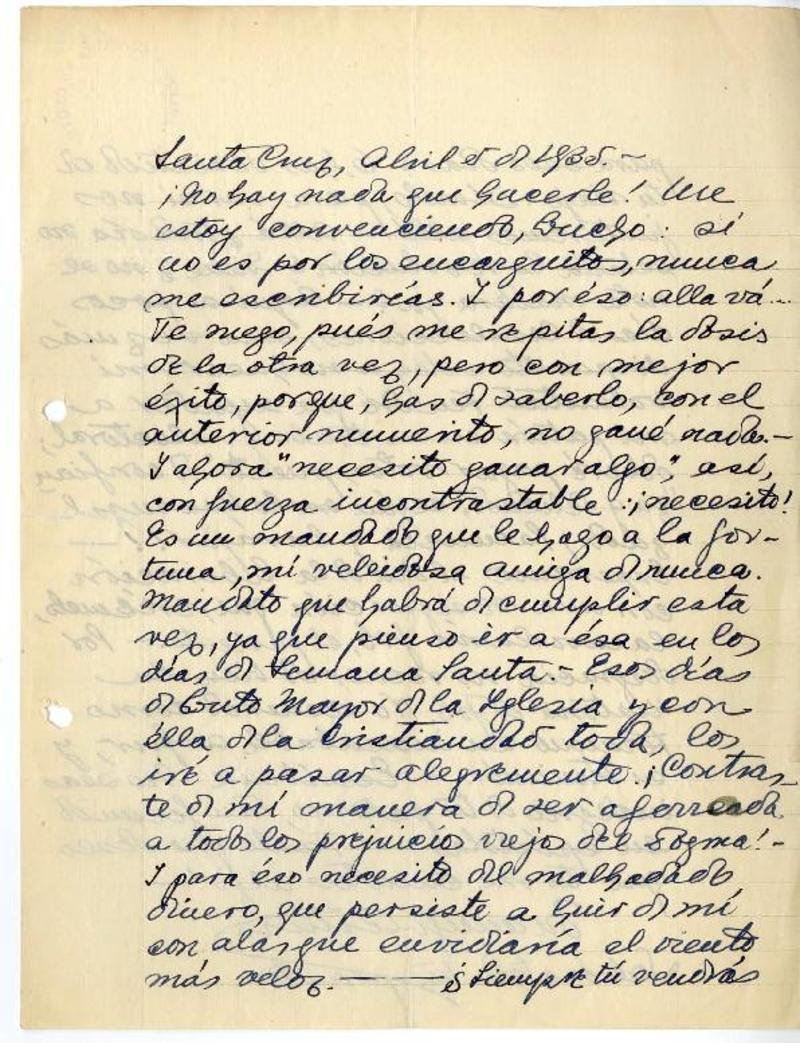 Santa Cruz, Abril 5 de 1935.-
¡No hay nada que hacerle! Me
estoy convenciendo, Lucho: si
no es por los encarguitos, nunca
me escribirías. I por éso: alla vá...
Te ruego, pués me repitas la dosis
de la otra vez, pero con mejor
éxito, porque, has de saberlo, con el
anterior numerito, no gané nada.-
I ahora "necesito ganar algo", así,
con fuerza incontrastable: ¡necesito!
Es un mandado que le hago a la for-
tuna, mi veleidosa amiga de nunca.
Mandato que habrá de cumplir esta
vez, ya que pienso ir a ésa en los
días de Semana Santa.- Esos días
de Luto Mayor de la Iglesia y con
élla de la cristiandad toda, los
iré a pasar alegremente. ¡Contras-
te de mi manera de ser aferrada
a todos los prejuicios viejos del dogma!-
I para éso necesito del malhadado
dinero, que persiste a huir de mí
con alas que envidiaría el viento
más veloz. ——— ¿Siempre tú vendrás